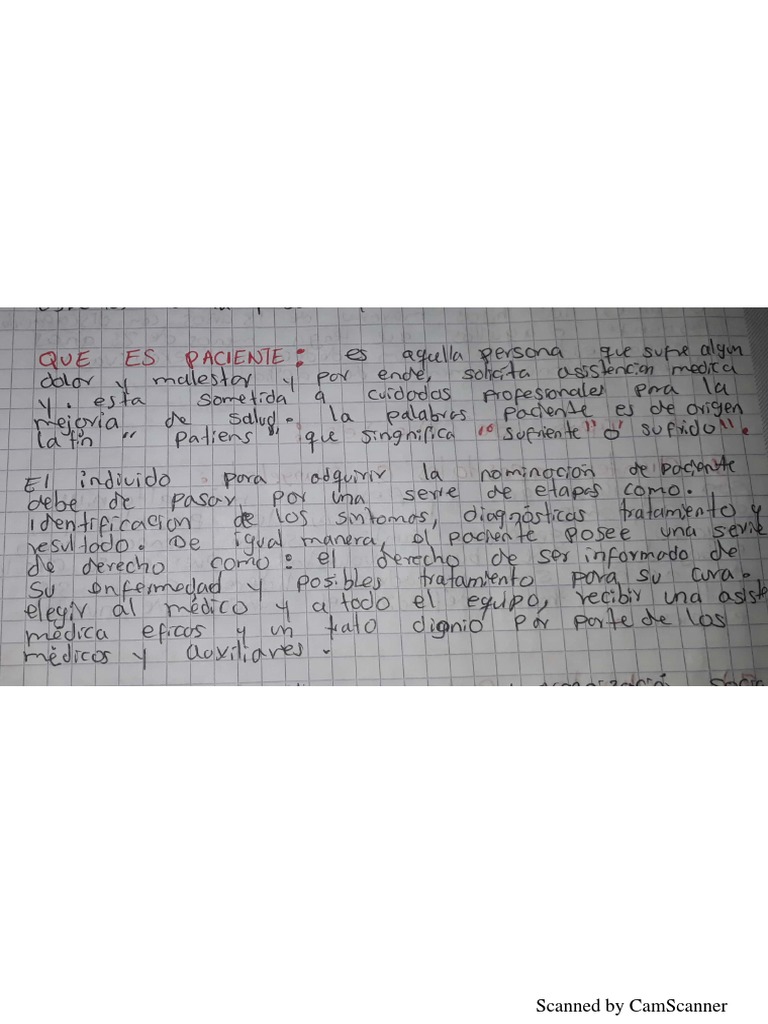 QUE ES PACIENTE: es aquella persona que sufre algun
dolor y malestar y por ende, solicita asistencian medica
y. esta sometida a cuidados profesionales para la
mejoria de salud. la palabras paciente es de origen
latin " patiens " que singnifica "sufriente" o' sufrido".
El individo para adquirir la nominacion de paciente
debe de pasar por una serie de etapas como.
identificacion de los sintomas, diagnósticas tratamiento y
resultado. De igual manera, el paciente posee una serie
de derecho como: el derecho de ser informado de
su enfermedad y posibles tratamiento para su cura.
elegir al médico y a todo el equipo, recibir una asiste
médica eficos y un trato dignio por parte de los
médicos y auxiliares.
Scanned by CamScanner